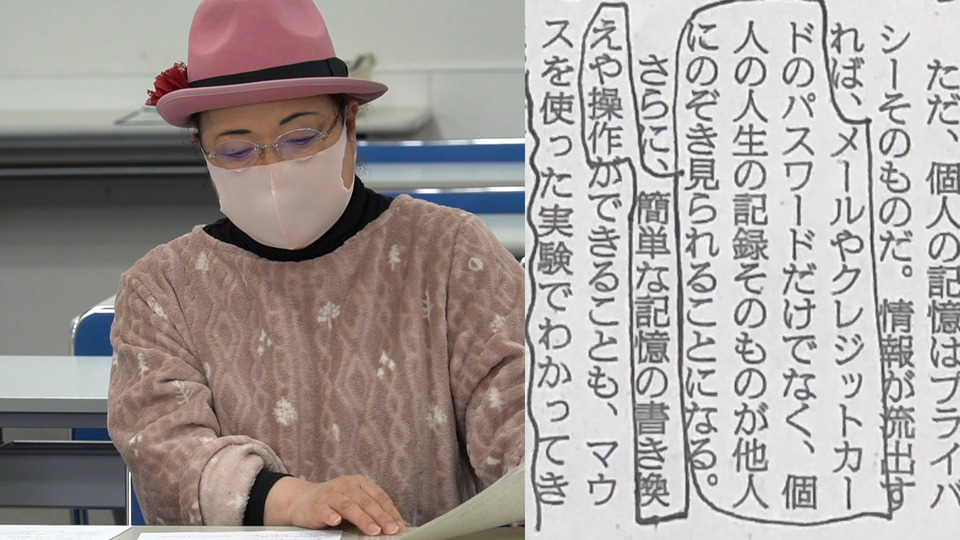 ただ、個人の記憶はプライバ
シーそのものだ。情報が流出す
れば、メールやクレジットカー
ドのパスワードだけでなく、個
人の人生の記録そのものが他人
にのぞき見られることになる。
さらに、簡単な記憶の書き換
えや操作ができることも、マウ
スを使った実験でわかってき